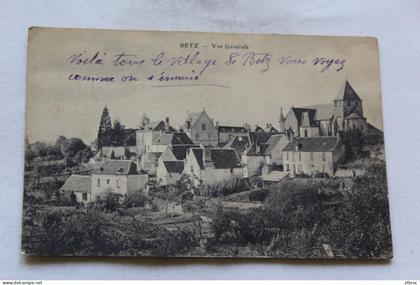 BETZ - Vue Générale
Voilà tous le village de Betz Vous Voyez
comme on s'ennuie
www.delcampe.net